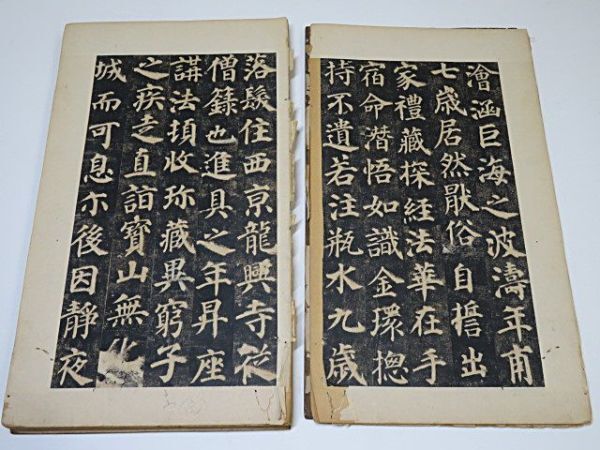 澮涵巨海之波濤年甫
七歲居然猒俗自誓出
家禮藏探經法華在手
宿命潛悟如識金環揔
持不遺若注瓶水九歲
落髮住西亰龍興寺從
僧籙也進具之年昇座
講法頓收珎藏異窮子
之疾走直詣寶山無化
城而可息尒後因靜夜